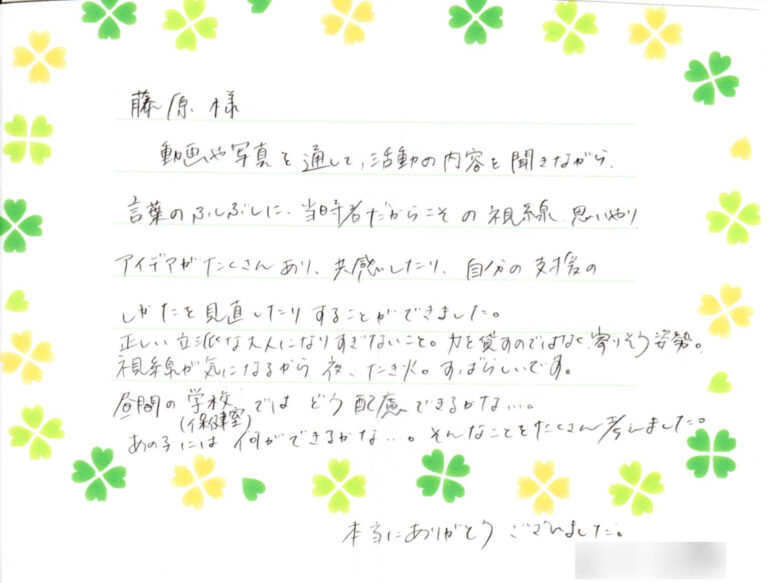 藤原様
動画や写真を通して、活動の内容を聞きながら、
言葉のふしぶしに、当時者だからこその視線、思いやり
アイデアがたくさんあり、共感したり、自分の支援の
しかたを見直したりすることができました。
正しい立派な大人になりすぎないこと。力を貸すのではなく、寄りそう姿勢。
視線が気になるから夜、たき火。すばらしいです。
昼間の学校(保健室)ではどう配慮できるかな…。
あの子には何ができるかな…。そんなことをたくさん考えました。
本当にありがとうございました。